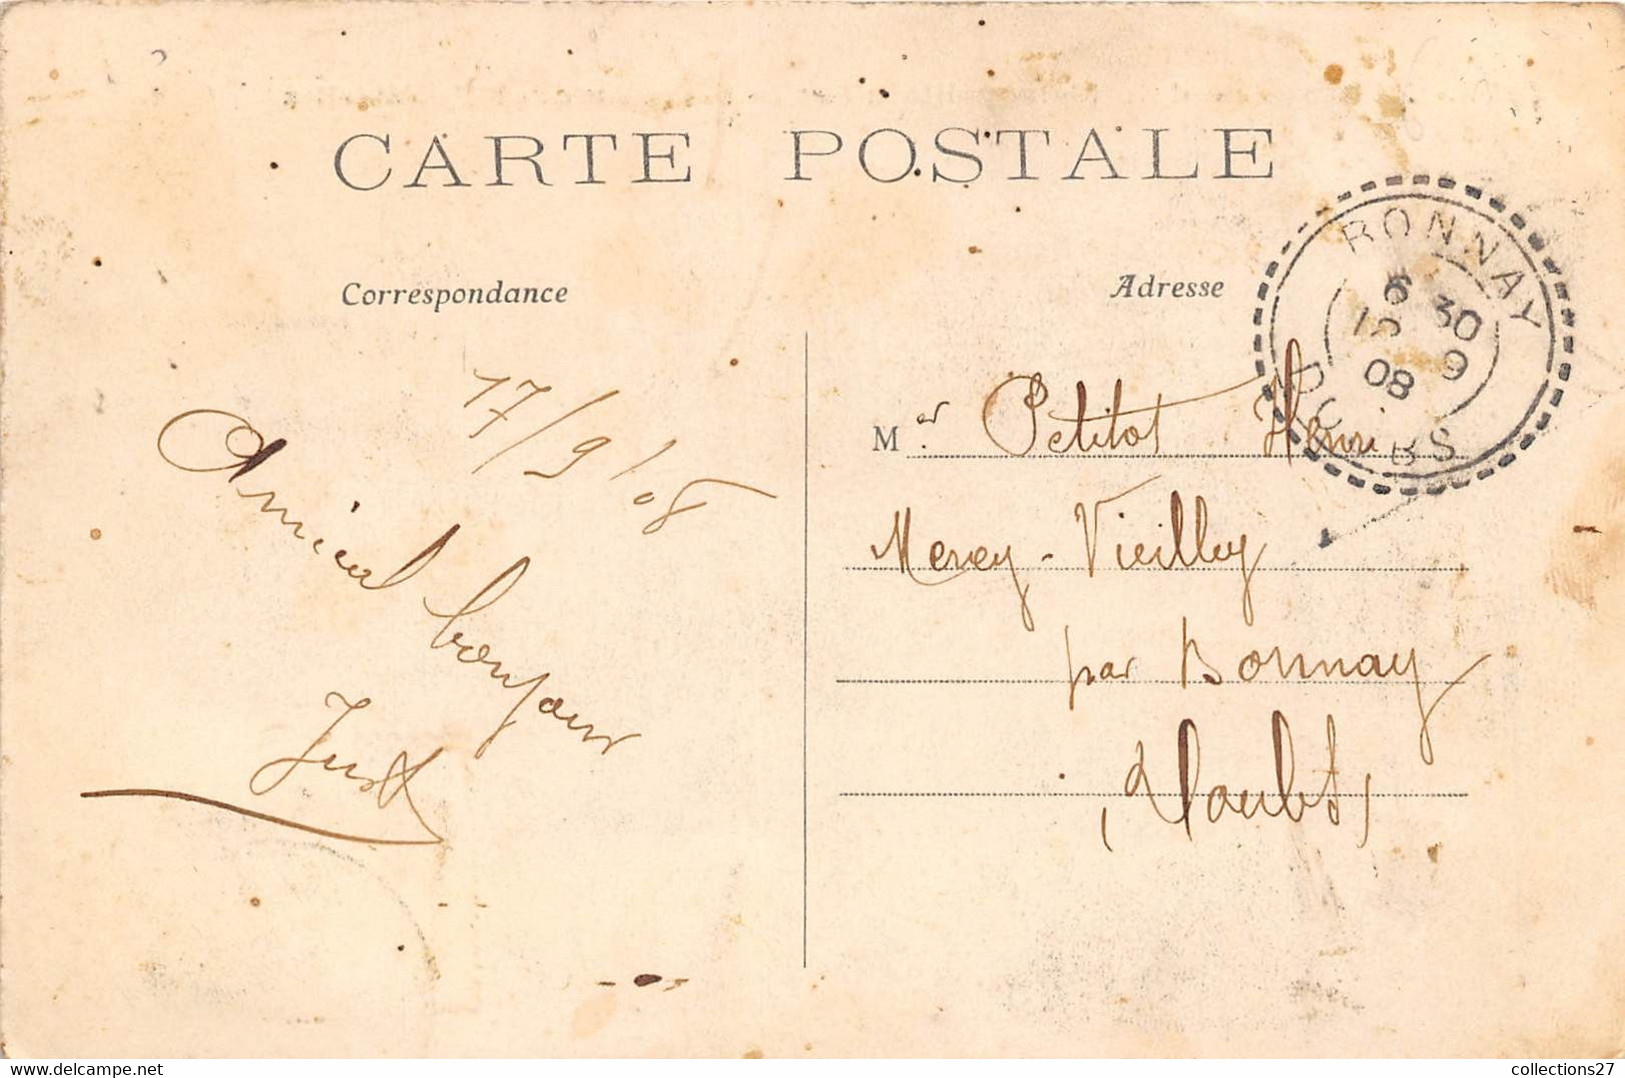 CARTE POSTALE
Correspondance
17/9/08
Amical bonjour
Just
Adresse
BONNAY
6 30
9
08
DOUBS
Mer Petitot Henri
Merey-Vieilley
par Bonnay
(Doubs)
collections27